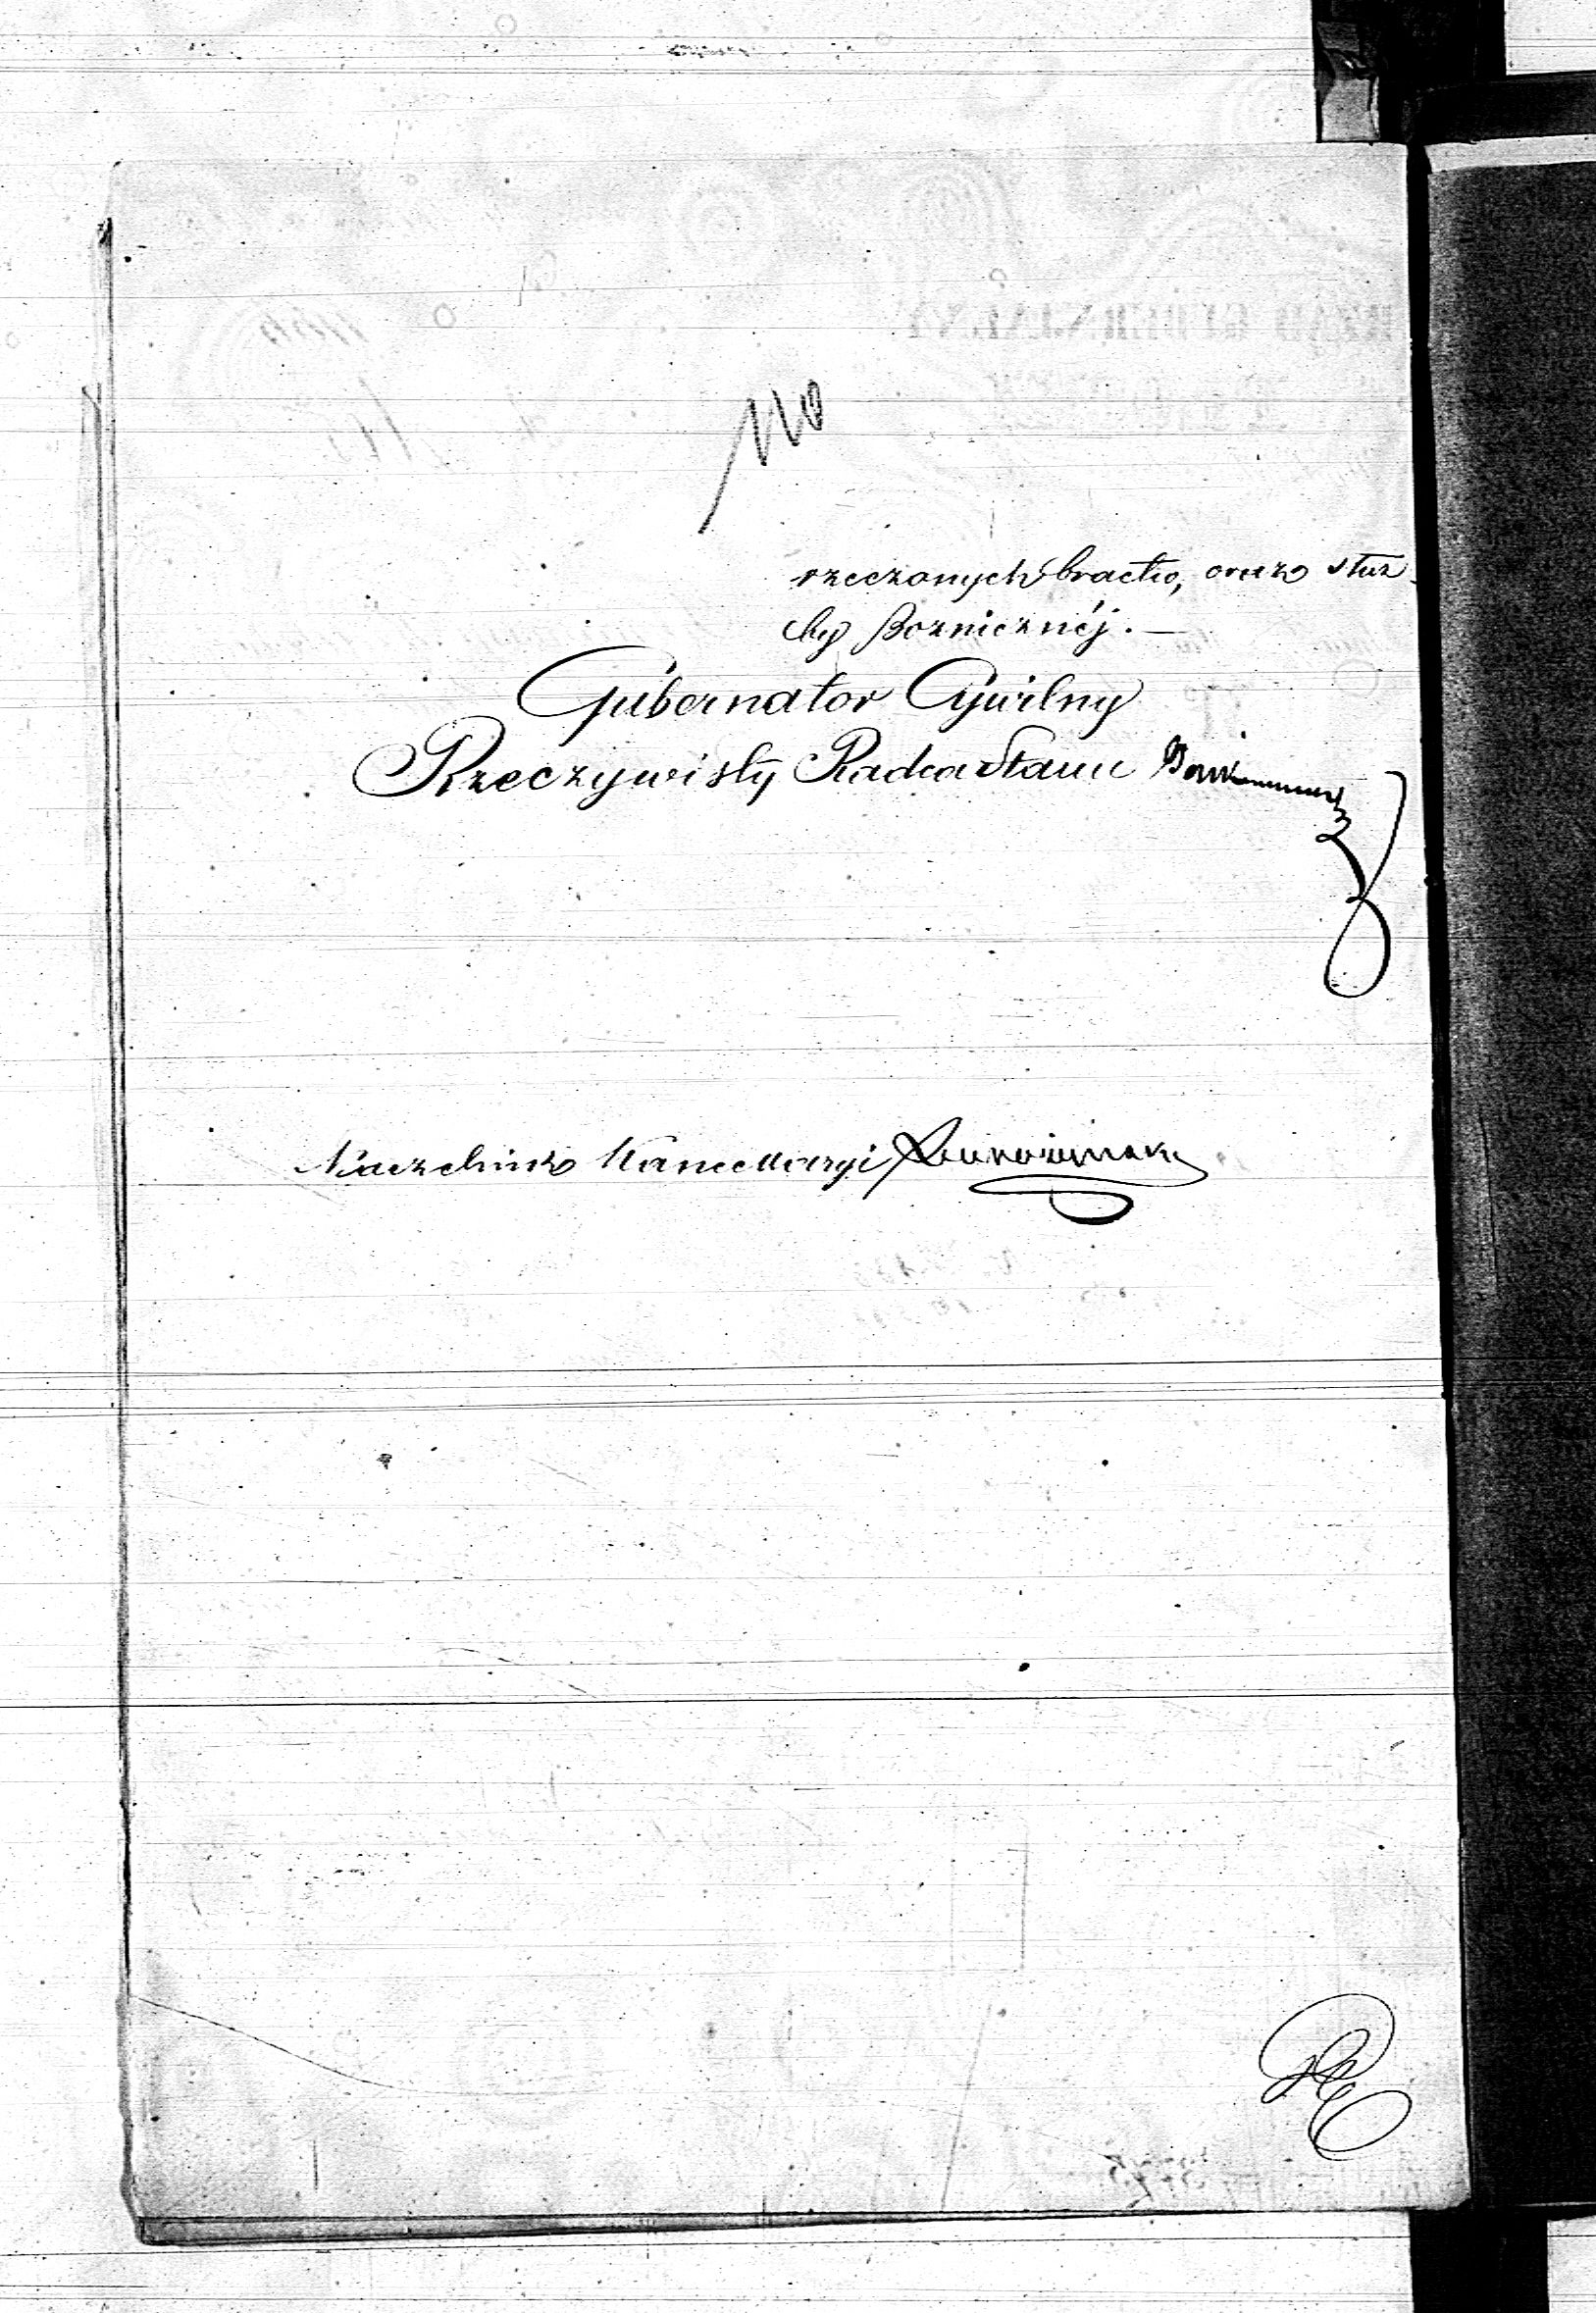 110
rzeczonych bractw, oraz służ-
by Boznicznéj. —
Gubernator Cywilny
Rzeczywisty Radca Stanu
Naczelnik Kancellaryi